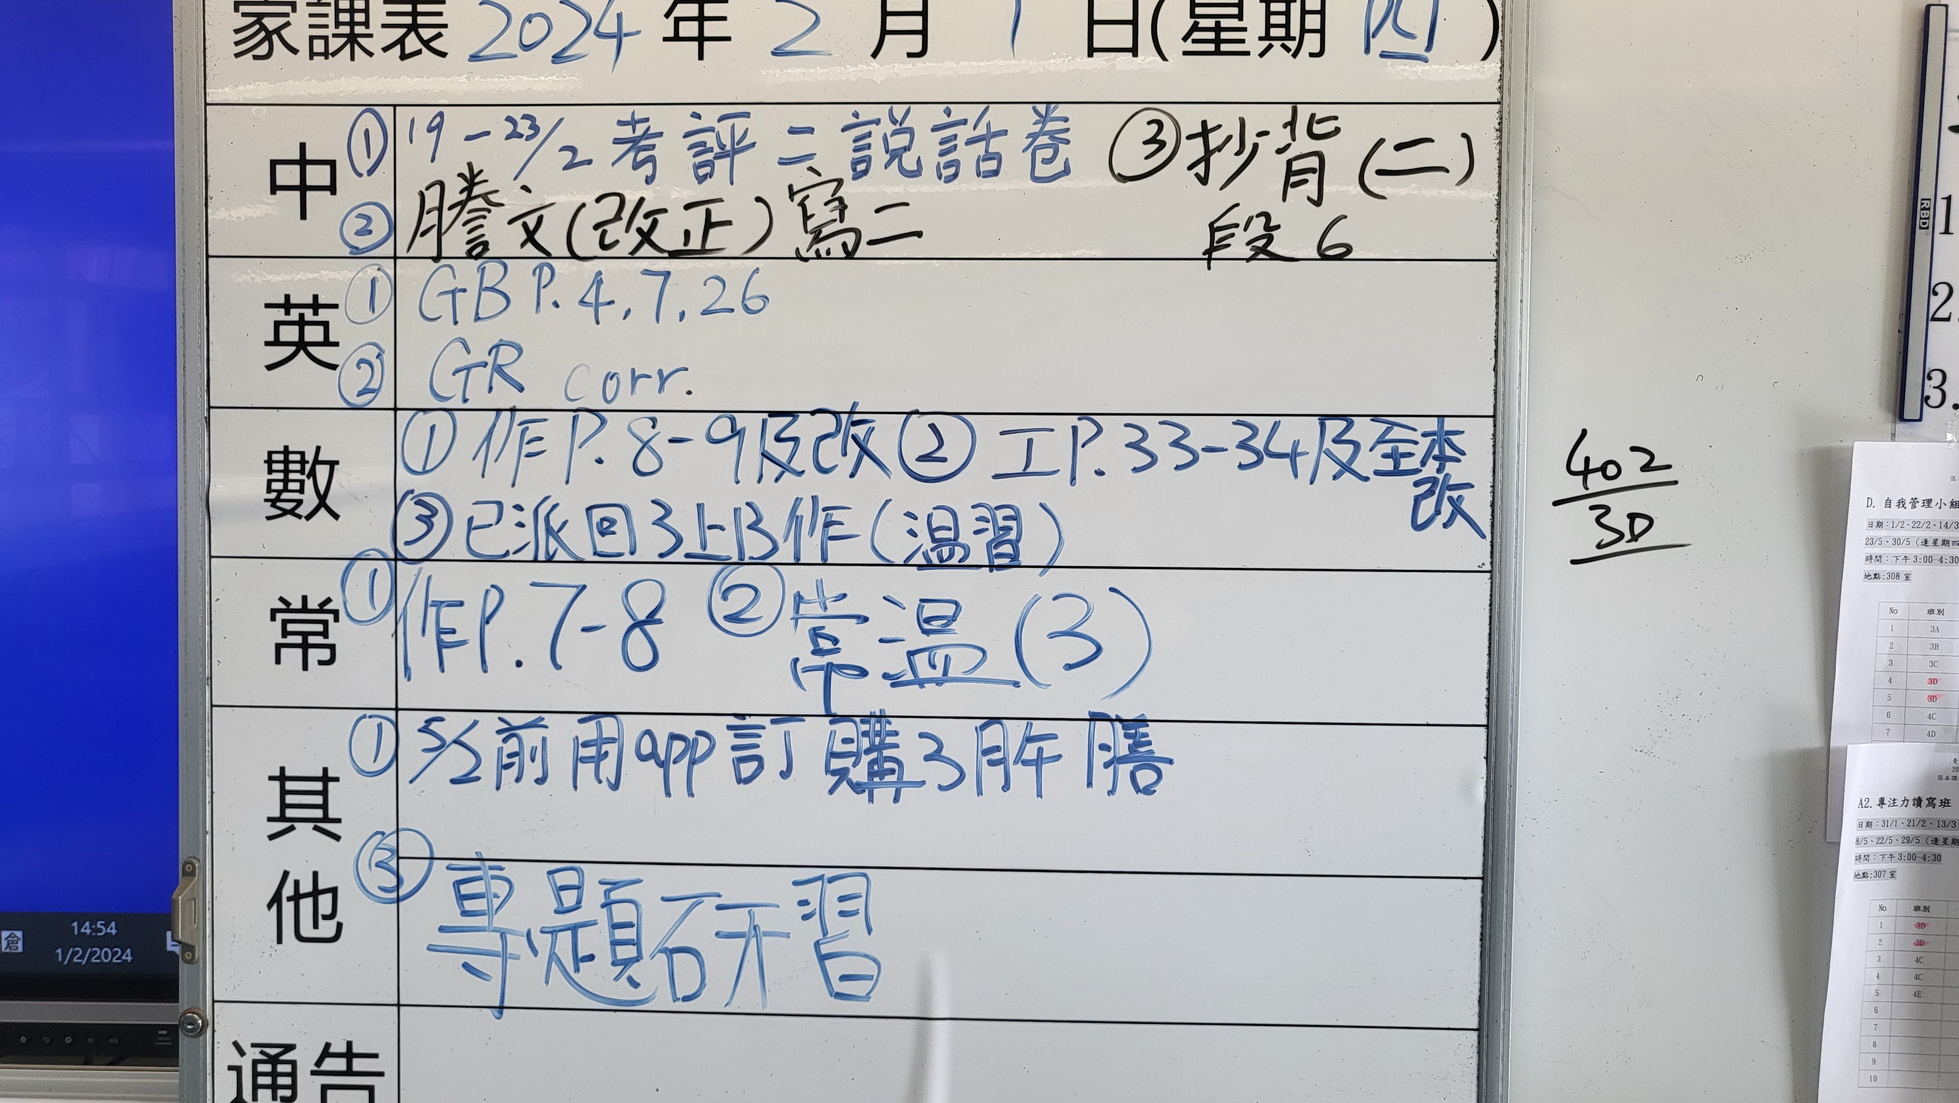 家課表 2024 年 2 月 1 日(星期 四)
中
① 19-23/2 考評二說話卷 ③抄背(二)
② 謄文(改正)寫二 段6
英
① GB P.4,7,26
② GR corr.
數
① 作P.8-9及改 ② 工P.33-34及至本
改
③已派回3上B作(温習)
常
① 作P.7-8 ② 常温(3)
其他
① 5/2前用app訂購3月午膳
③ 專題研習
通告
402
3D
倉
14:54
1/2/2024
RBD
1
2.
3.
D. 自我管理小組
日期：1/2、22/2、14/3
23/5、30/5 (逢星期四
時間：下午3:00-4:30
地點:308 室
No 班別
1 3A
2 3B
3 3C
4 3D
5 3D
6 4C
7 4D
A2. 專注力讀寫班
日期：31/1、21/2、13/3
8/5、22/5、29/5 (逢星期
時間：下午3:00-4:30
地點:307 室
No 班別
1 3D
2 3D
3 4C
4 4C
5 4E
6
7
8
9
10